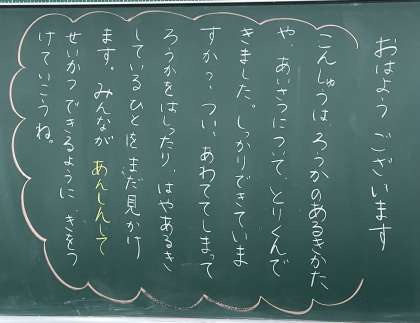 おはようございます
こんしゅうは、ろうかのあるきかた
や、あいさつについて、とりくんで
きました。しっかりできていま
すか？つい、あわててしまって
ろうかをはしったり、はやあるき
しているひとをまだ見かけ
ます。みんなが あんしんして
せいかつできるように、きをつ
けていこうね。